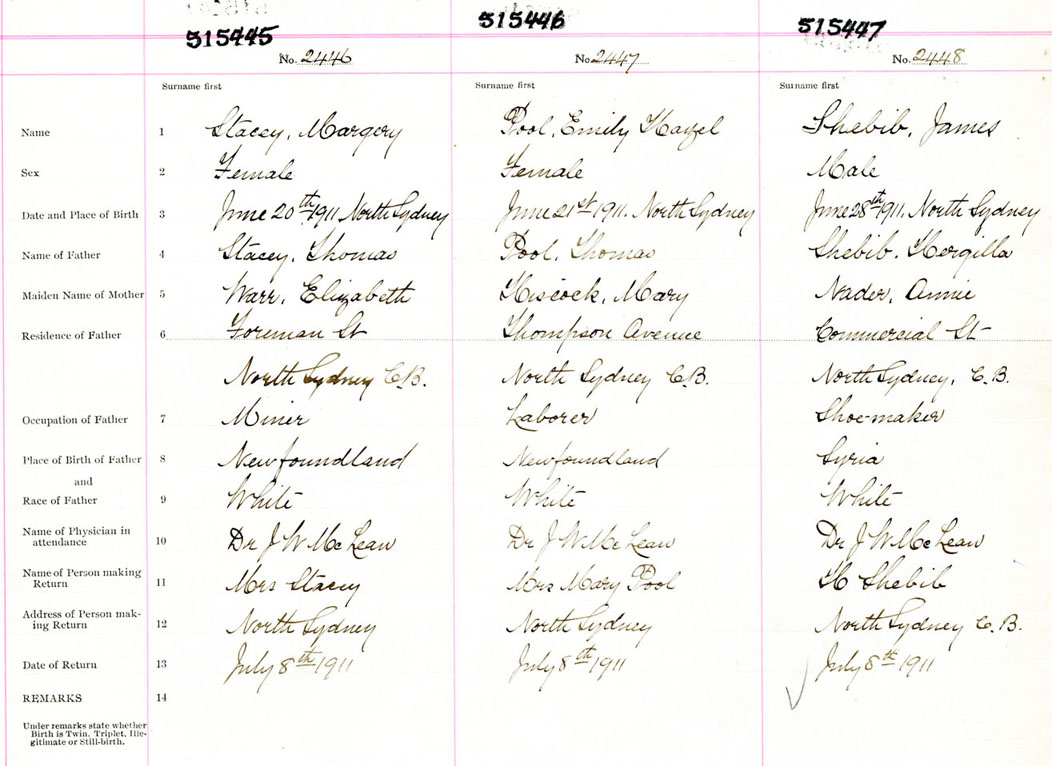 515445 515446 515447
No. 2446 No. 2447 No. 2448
Surname first Surname first Surname first
Name 1 Stacey, Margery Pool, Emily Hazel Shebib, James
Sex 2 Female Female Male
Date and Place of Birth 3 June 20th 1911 North Sydney June 21st 1911. North Sydney June 28th 1911. North Sydney
Name of Father 4 Stacey, Thomas Pool, Thomas Shebib, Hergilla
Maiden Name of Mother 5 Warr, Elizabeth Hiscock, Mary Nader, Annie
Residence of Father 6 Foreman St Thompson Avenue Commercial St
North Sydney C.B. North Sydney C.B. North Sydney, C.B.
Occupation of Father 7 Miner Laborer Shoe-maker
Place of Birth of Father 8 Newfoundland Newfoundland Syria
and
Race of Father 9 White White White
Name of Physician in
attendance 10 Dr J W McLean Dr J W McLean Dr J W McLean
Name of Person making
Return 11 Mrs Stacey Mrs Mary Pool H Shebib
Address of Person mak-
ing Return 12 North Sydney North Sydney North Sydney C.B.
Date of Return 13 July 8th 1911 July 8th 1911 July 8th 1911
REMARKS 14
Under remarks state whether
Birth is Twin, Triplet, Ille-
gitimate or Still-birth.